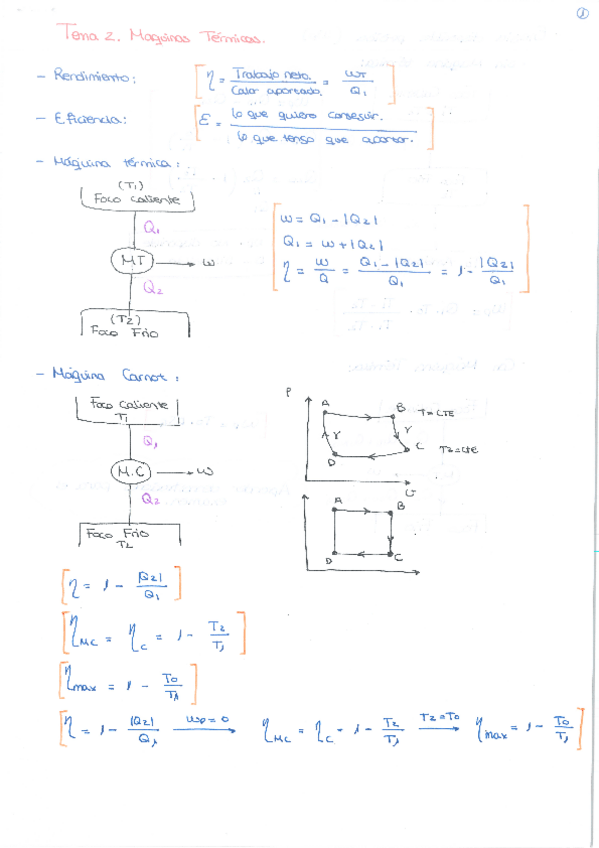 1
Tema 2. Maquinas Térmicas.
- Rendimiento: [η = Trabajo neto. / Calor aportado. = WT / Q1]
- Eficiencia: [ε = lo que quiero conseguir. / lo que tengo que aportar.]
- Máquina térmica:
(T1)
Foco Caliente
Q1
MT → W
Q2
(T2)
Foco Frio
[W = Q1 - |Q2|
Q1 = W + |Q2|
η = W/Q = (Q1 - |Q2|)/Q1 = 1 - |Q2|/Q1]
- Máquina Carnot:
Foco Caliente
T1
Q1
M.C → W
Q2
Foco Frio
T2
P
A B T=CTE
γ γ
D C T2=CTE
V
A B
D C
[η = 1 - |Q2|/Q1]
[ηMC = ηC = 1 - T2/T1]
[ηmax = 1 - T0/T1]
[η = 1 - |Q2|/Q1 → ηMC = ηC = 1 - T2/T1 T2=T0 → ηmax = 1 - T0/T1]